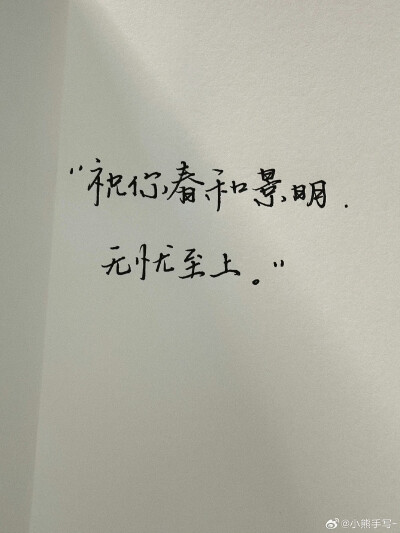 “祝你春和景明.
无忧至上。”
@小熊手写~